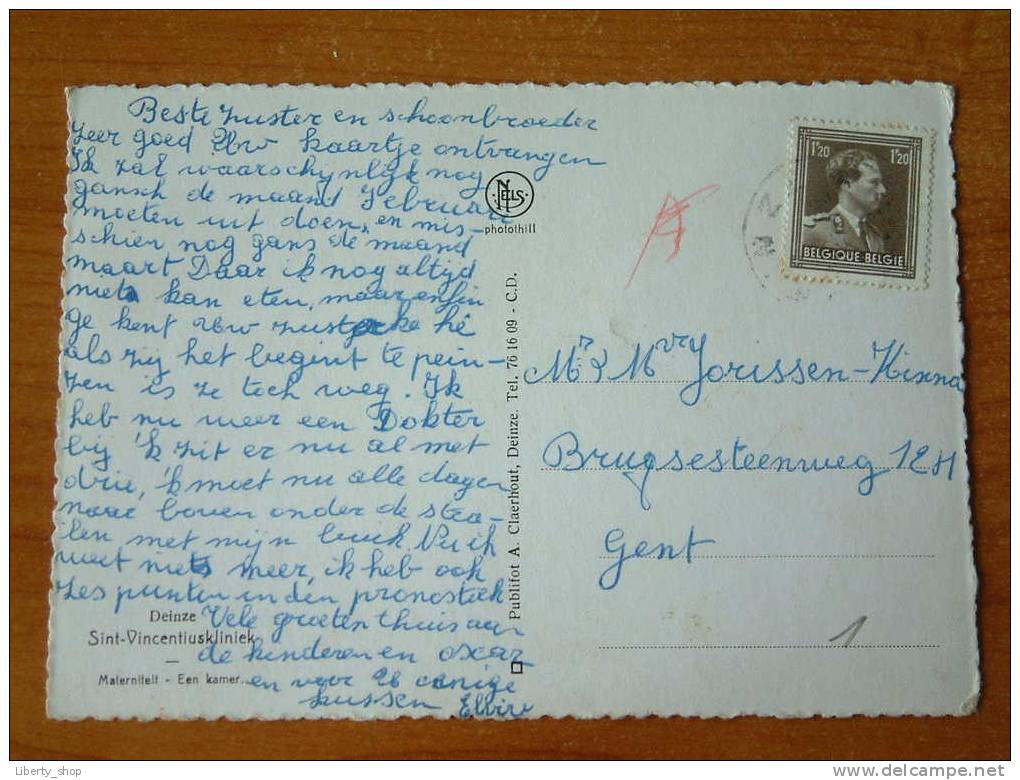 Beste zuster en schoonbroeder
zeer goed Uw kaartje ontvangen
Ik zal waarschynlyk nog
gansch de maand Februari
moeten uit doen, en mis-
schien nog gans de maand
maart Daar ik nog altyd
niets kan eten, maar enfin
ge kent Uw zusterke hé
als zy het begint te pein-
zen is ze toch weg. Ik
heb nu weer een Dokter
by 'k zit er nu al met
drie, 'k moet nu alle dagen
naar boven onder de stra-
len met myn buik. Nu ik
weet niets meer, ik heb ook
zes punten in den pronostiek
Vele groeten thuis aan
de kinderen en oscar
en voor U enige
kussen Elvire
Deinze
Sint-Vincentiuskliniek
Materniteit - Een kamer.
NELS
photothill
Publifot A. Claerhout, Deinze. Tel. 76 16 09 - C.D.
1'20 1'20
BELGIQUE BELGIE
Mr & Mvr Jorissen-Hinna
Brugsesteenweg 124
Gent
1
Liberty_shop
delcampe.net